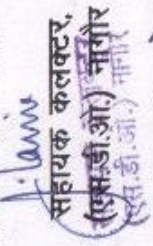 सहायक कलक्टर,
(एस.डी.ओ.) नागौर
(एस.डी.ओ.) नागौर